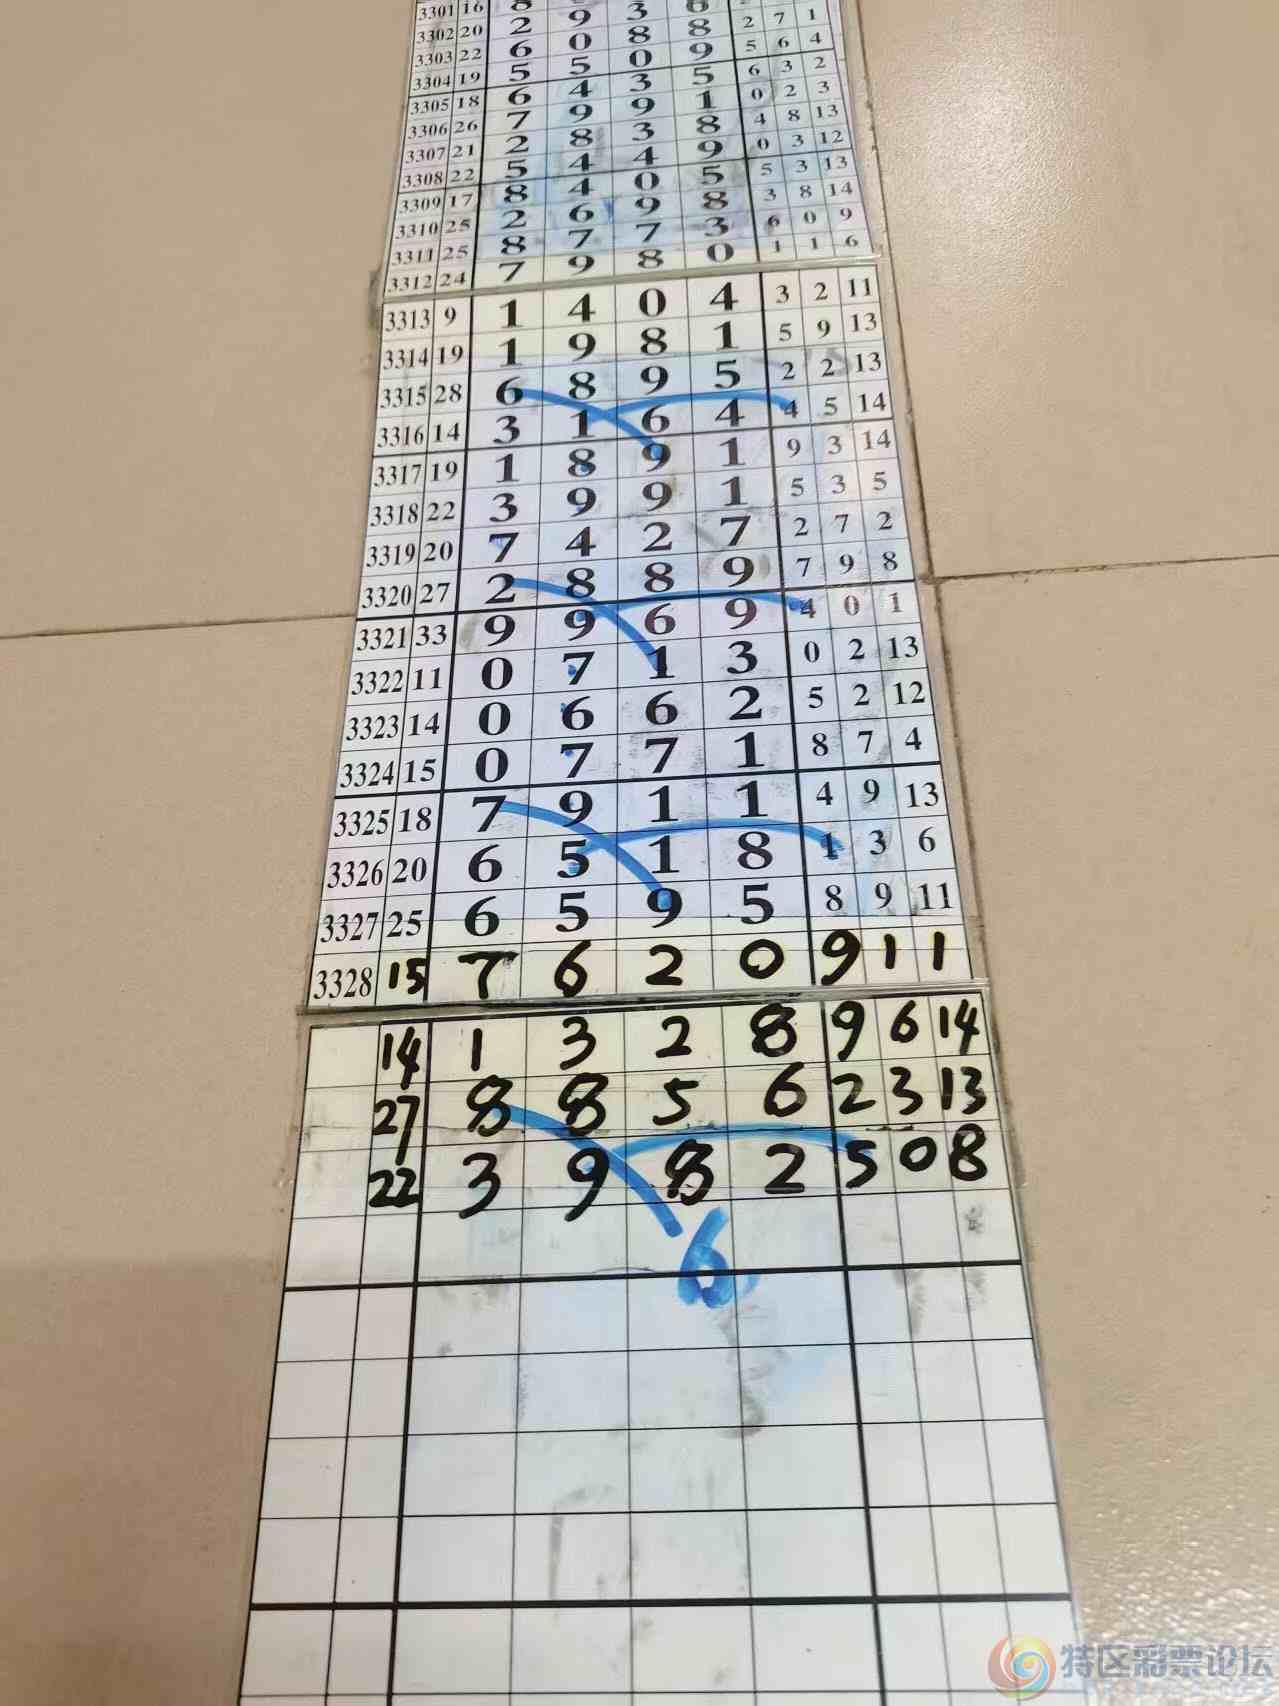 3301 16 8 9 3 6
3302 20 2 0 8 8 2 7 1
3303 22 6 5 0 9 5 6 4
3304 19 5 4 3 5 6 3 2
3305 18 6 9 9 1 0 2 3
3306 26 7 8 3 8 4 8 13
3307 21 2 4 4 9 0 3 12
3308 22 5 4 0 5 5 3 13
3309 17 8 6 9 8 3 8 14
3310 25 2 7 7 3 6 0 9
3311 25 8 9 8 0 1 1 6
3312 24 7
3313 9 1 4 0 4 3 2 11
3314 19 1 9 8 1 5 9 13
3315 28 6 8 9 5 2 2 13
3316 14 3 1 6 4 4 5 14
3317 19 1 8 9 1 9 3 14
3318 22 3 9 9 1 5 3 5
3319 20 7 4 2 7 2 7 2
3320 27 2 8 8 9 7 9 8
3321 33 9 9 6 9 4 0 1
3322 11 0 7 1 3 0 2 13
3323 14 0 6 6 2 5 2 12
3324 15 0 7 7 1 8 7 4
3325 18 7 9 1 1 4 9 13
3326 20 6 5 1 8 1 3 6
3327 25 6 5 9 5 8 9 11
3328 15 7 6 2 0 9 1 1
14 1 3 2 8 9 6 14
27 8 8 5 6 2 3 13
22 3 9 8 2 5 0 8
6
特区彩票论坛